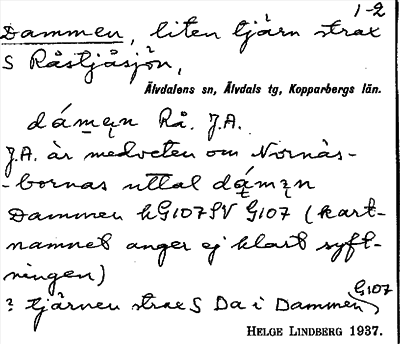 1-2
Dammen, liten tjärn strax
S Råstjåsjön,
Älvdalens sn, Älvdals tg, Kopparbergs län.
Rå. J.A.
J.A. är medveten om Nornäs-
-bornas uttal
Dammen kG107SV G107 (kart-
namnet anger ej klart syft-
ningen)
? tjärnen strax S Da i Dammen G107
HELGE LINDBERG 1937.